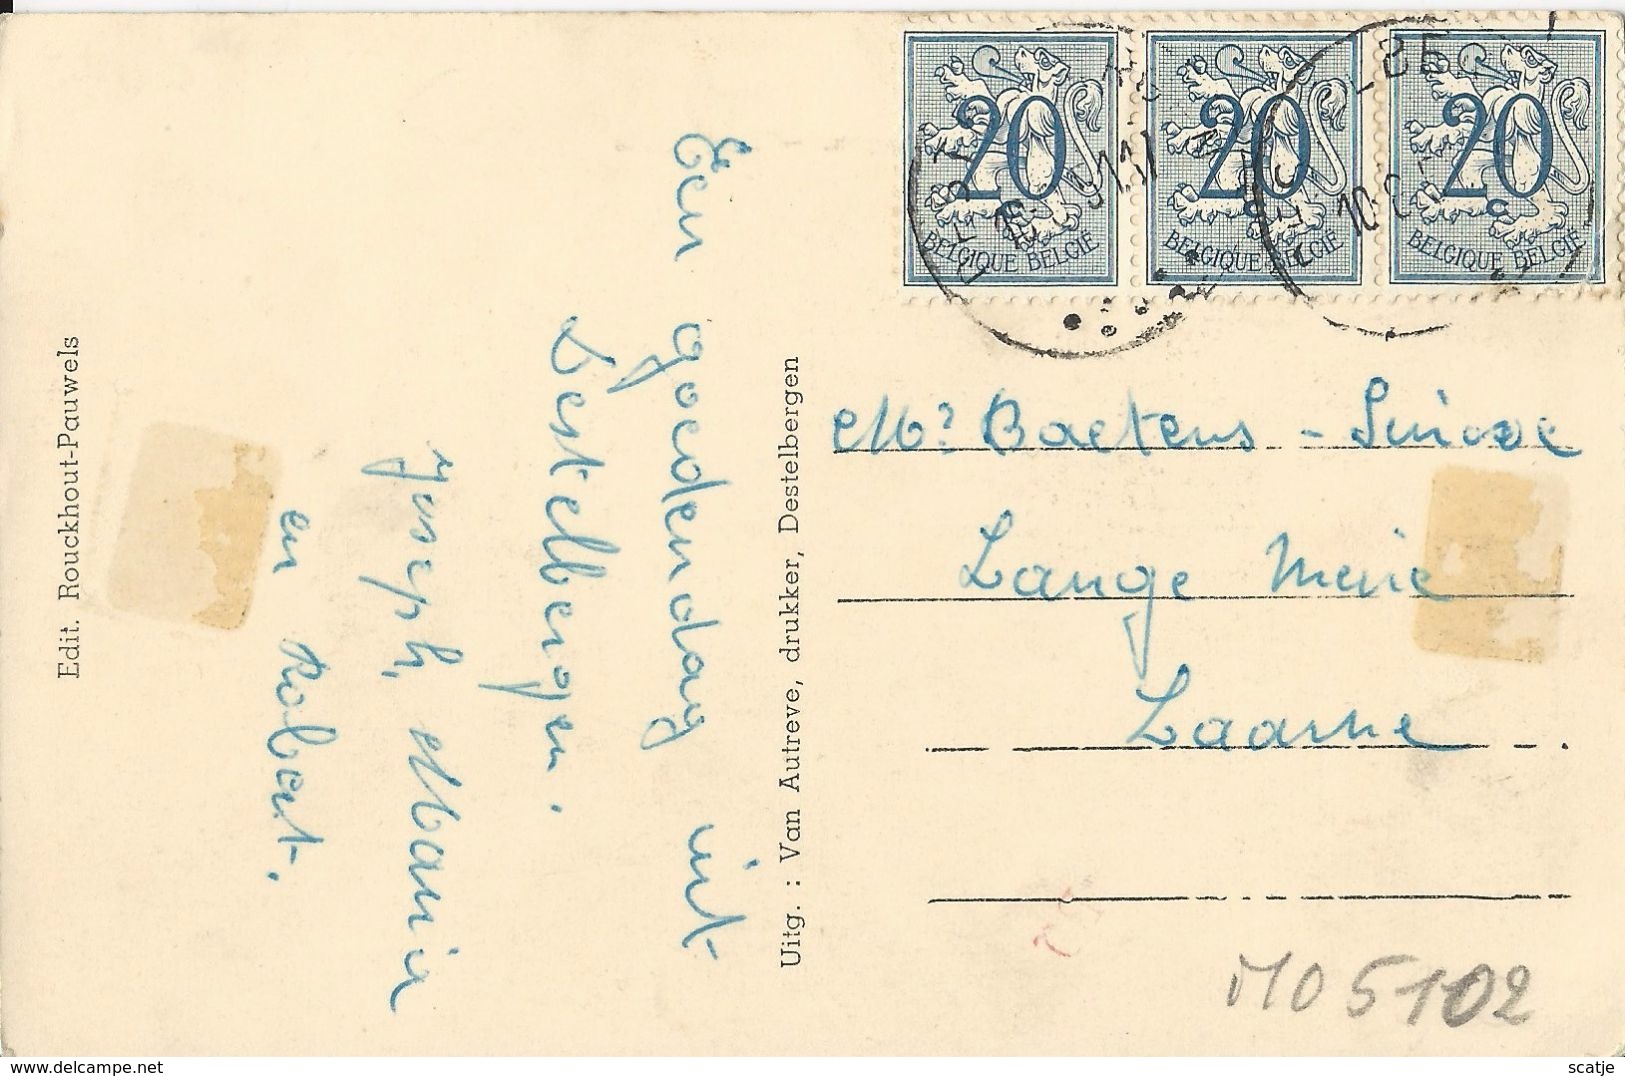 Edit. Rouckhout-Pauwels
Een goedendag uit
Destelbergen.
Joseph, Maria
en Robert.
Uitg. : Van Autreve, drukker, Destelbergen
20
BELGIQUE BELGIË
20
c
BELGIQUE BELGIË
20
c
BELGIQUE BELGIË
Mr Baetens -
Lange Meire
Laarne
MO5102
www.delcampe.net
scatje